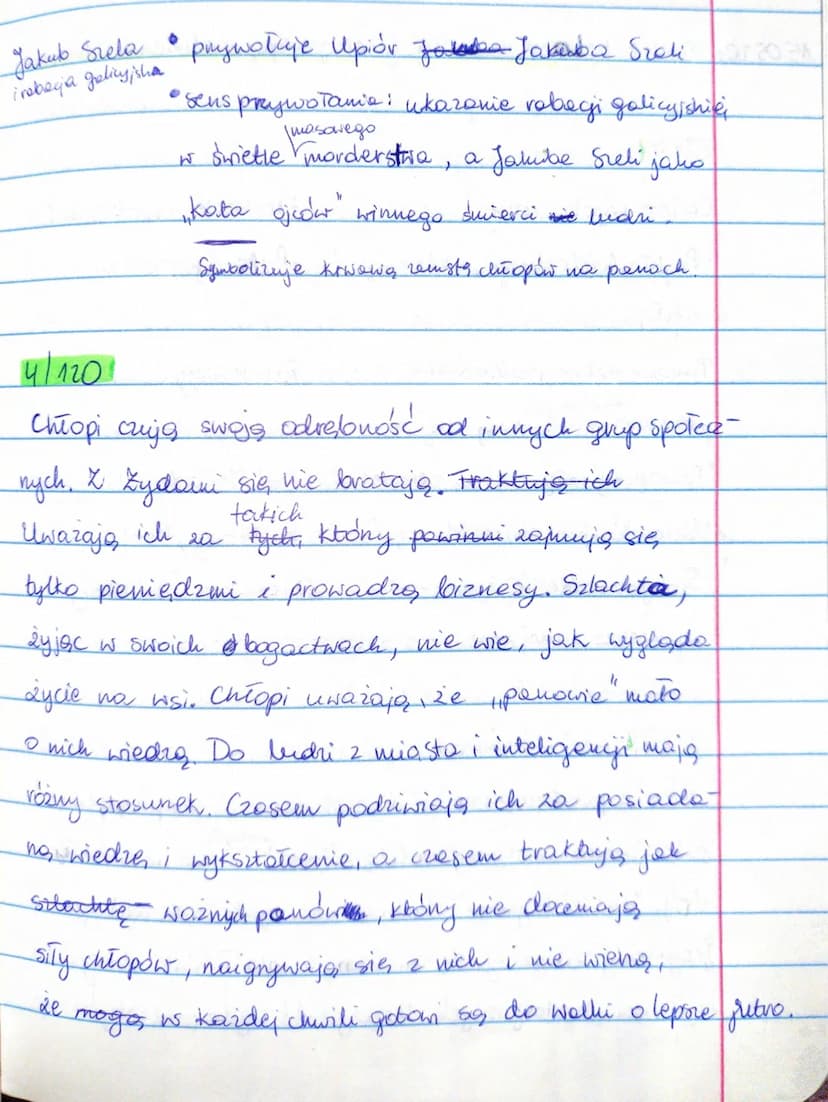 Jakub Szela
i rabacja galicyjska
• przywołuje Upiór Jakuba Jakuba Szeli
• sens przywołania: ukazanie rabacji galicyjskiej
w świetle masowego morderstwa, a Jakuba Szeli jako
„kata ojców" winnego śmierci nie ludzi.
Symbolizuje krwawą zemstę chłopów na panach.
4/120
Chłopi czują swoją odrębność od innych grup społecz-
nych. Z Żydami się nie bratają. Traktują ich
Uważają ich za tych, takich który powinni zajmują się
tylko pieniędzmi i prowadzą biznesy. Szlachta,
żyjąc w swoich bogactwach, nie wie, jak wygląda
życie na wsi. Chłopi uważają, że „panowie" mało
o nich wiedzą. Do ludzi z miasta i inteligencji mają
różny stosunek. Czasem podziwiają ich za posiada-
ną wiedzę i wykształcenie, a czasem traktują jak
szlachtę ważnych panów, który nie doceniają
siły chłopów, naigrywają się z nich i nie wierzą,
że mogą w każdej chwili gotowi są do walki o lepsze jutro.